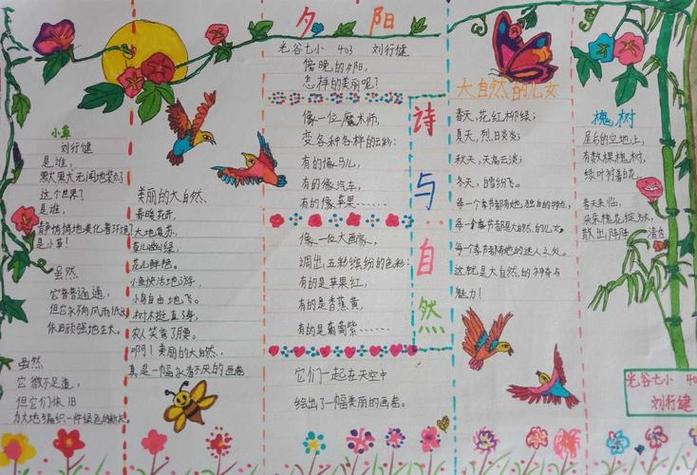 小草
刘行健
是谁，
默默无闻地装扮
这个世界？
是谁，
静悄悄地美化着环境
是小草！
虽然
它普普通通，
但它不向风雨低头
依旧顽强地生长。
虽然
它微不足道，
但它们依旧
为大地编织一件绿色的新衣
美丽的大自然、
春暖花开，
大地复苏，
花儿鲜艳。
小鱼快活地游，
小鸟自由地飞。
树木挺直了身，
农人笑弯了眉。
啊！美丽的大自然、
真是一幅永看不厌的画卷
夕阳
光谷七小 403 刘行健
傍晚的夕阳，
怎样的美丽呢？
像一位魔术师，
变各种各样的云彩：
有的像马儿，
有的像汽车，
有的像苹果……
像一位大画家，
调出五彩缤纷的色彩：
有的是苹果红，
有的是香蕉黄，
有的是葡萄紫……
它们一起在天空中
绘出了一幅美丽的画卷
诗与自然
大自然的儿女
春天，花红柳绿；
夏天，烈日炎炎；
秋天，天高云淡；
冬天，白雪纷飞。
每一个季节都有她独自的特点，
每一个季节都是大自然的儿女。
每个季节都有她的迷人之处。
这就是大自然的神奇与
魅力！
槐树
屋后的空地上，
有数棵槐树，
绿叶衬着白花
春天来临，
朵朵槐花绽放，
散出阵阵清香
光谷七小 403
刘行健